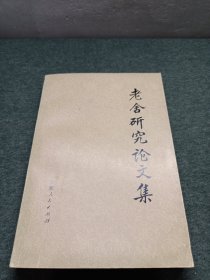 老舍研究论文集
人民出版社